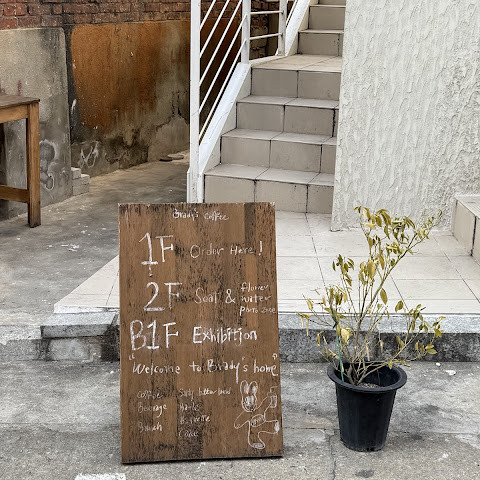 Brady's coffee
1F Order Here!
2F Seat & flower water
Photo zone
B1F Exhibition
"Welcome to Brady's home"
Coffee Salty butter bread
Beverage Garlic
Brunch Baguette
Cake